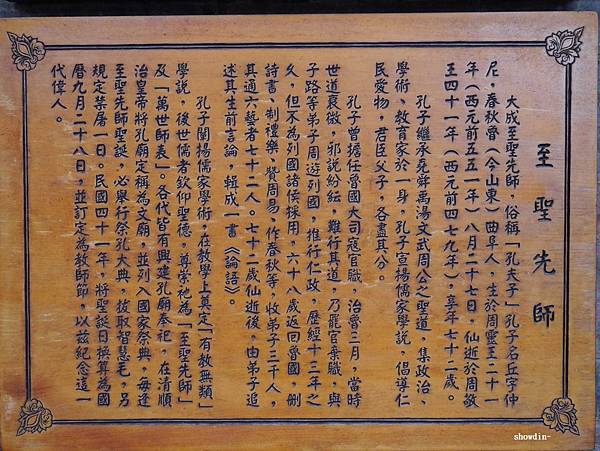 至聖先師
大成至聖先師，俗稱「孔夫子」孔子名丘字仲
尼，春秋魯（今山東）曲阜人，生於周靈王二十一
年（西元前五五一年）八月二十七日，仙逝於周敬
王四十一年（西元前四七九年），享年七十二歲。
孔子繼承堯舜禹湯文武周公之聖道，集政治、
學術、教育家於一身，孔子宣揚儒家學說，倡導仁
民愛物，君臣父子，各盡其分。
孔子曾擔任魯國大司寇官職，治魯三月，當時
世道衰微，邪說紛紜，難行其道，乃罷官棄職，與
子路等弟子周遊列國，推行仁政，歷經十三年之
久，但不為列國諸侯採用，六十八歲返回魯國，刪
詩書、制禮樂、贊周易、作春秋等，收弟子三千人，
其通六藝者七十二人。七十二歲仙逝後，由弟子追
述其生前言論，輯成一書《論語》。
孔子闡揚儒家學術，在教學上奠定「有教無類」
學說，後世儒者欽仰聖德，尊崇祀為「至聖先師」
及「萬世師表」。各代皆有興建孔廟奉祀，在清順
治皇帝將孔廟定稱為文廟，並列入國家祭典，每逢
至聖先師聖誕，必舉行祭孔大典，拔取智慧毛，另
規定禁屠一日。民國四十一年，將聖誕日換算為國
曆九月二十八日，並訂定為教師節，以茲紀念這一
代偉人。
showdin~